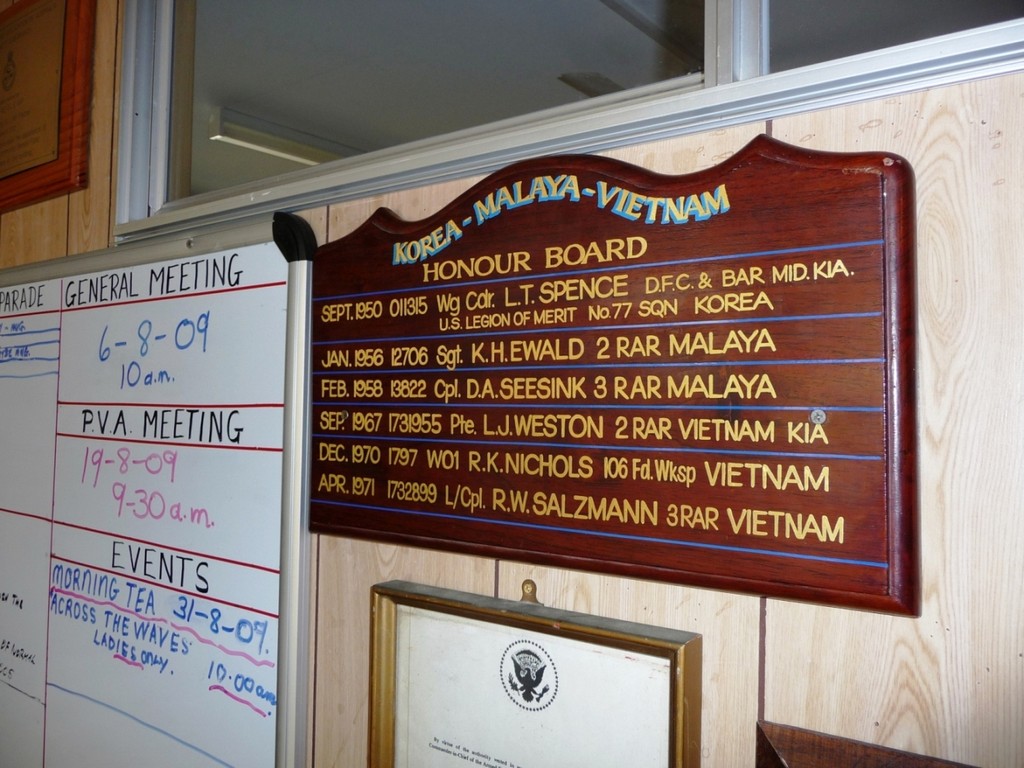 PARADE
GENERAL MEETING
6-8-09
10 a.m.
P.V.A. MEETING
19-8-09
9-30 a.m.
EVENTS
MORNING TEA 31-8-09.
ACROSS THE WAVES
LADIES ONLY. 10.00am
KOREA - MALAYA - VIETNAM
HONOUR BOARD
SEPT. 1950 011315 Wg Cdr. L.T. SPENCE D.F.C. & BAR MID. KIA.
U.S. LEGION OF MERIT No. 77 SQN KOREA
JAN. 1956 12706 Sgt. K.H. EWALD 2 RAR MALAYA
FEB. 1958 13822 Cpl. D.A. SEESINK 3 RAR MALAYA
SEP. 1967 1731955 Pte. L.J. WESTON 2 RAR VIETNAM KIA
DEC. 1970 1797 WO1 R.K. NICHOLS 106 Fd. Wksp VIETNAM
APR. 1971 1732899 L/Cpl. R.W. SALZMANN 3 RAR VIETNAM
By virtue of the authority vested in
Commander-in-Chief of the Armed